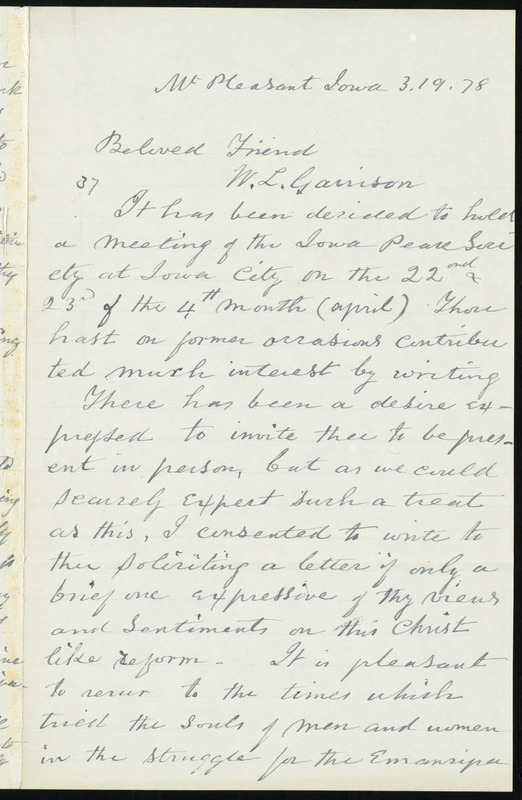 Mt Pleasant Iowa 3.19.78
Beloved Friend
37 W. L. Garrison
It has been decided to hold
a meeting of the Iowa Peace Soci
ety at Iowa City on the 22nd &
23rd of the 4th month (april) Thou
hast on former occasions contribu
ted much interest by writing
There has been a desire ex-
pressed to invite thee to be pres-
ent in person, but as we could
scarcely expect such a treat
as this, I consented to write to
thee soliciting a letter if only a
brief one expressive of thy views
and sentiments on this Christ
like reform - It is pleasant
to recur to the times which
tried the souls of men and women
in the struggle for the Emancipa